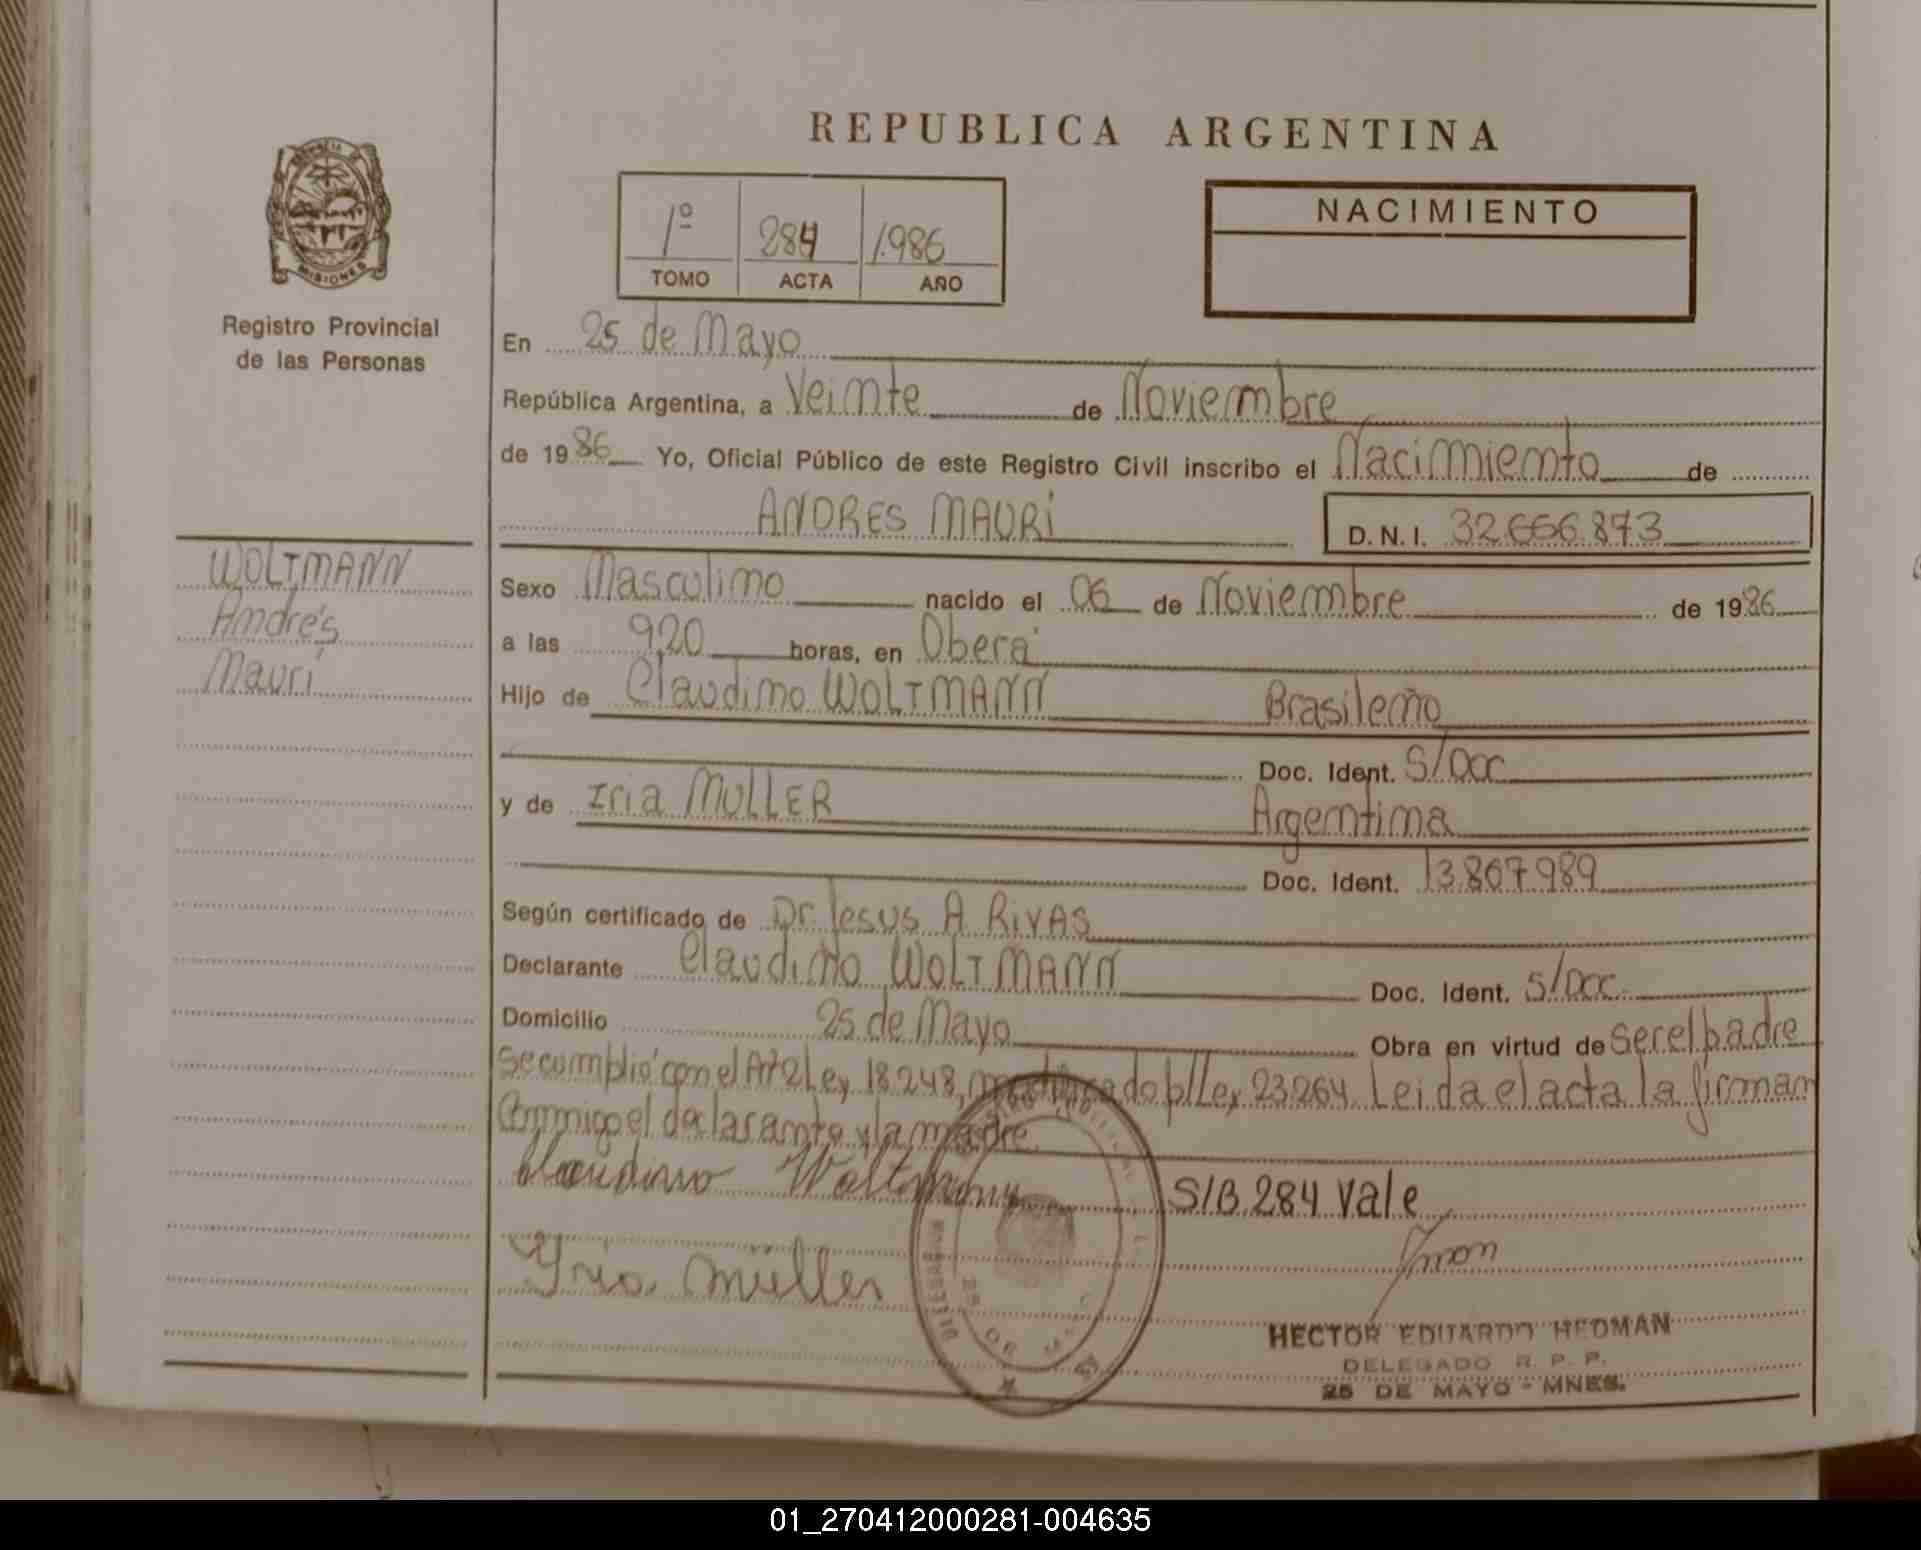 REPUBLICA ARGENTINA
PROVINCIA DE
MISIONES
Registro Provincial
de las Personas
1º 284 1.986
TOMO ACTA AÑO
NACIMIENTO
En 25 de Mayo
República Argentina, a Veinte de Noviembre
de 1986 Yo, Oficial Público de este Registro Civil inscribo el Nacimiento de
ANDRES MAURI
D.N.I. 32.666.873
WOLTMANN
Andrés
Mauri
Sexo Masculino nacido el 06 de Noviembre de 1986
a las 9,20 horas, en Oberá
Hijo de Claudino WOLTMANN Brasileño
Doc. Ident. S/Doc
y de Iria MULLER Argentina
Doc. Ident. 13.807.989
Según certificado de Dr. Jesus A RIVAS
Declarante Claudino WOLTMANN Doc. Ident. S/Doc.
Domicilio 25 de Mayo Obra en virtud de ser el padre
Se cumplió con el Art 2 Ley 18.248, modificado p/Ley 23264 Leida el acta la firman
Conmigo el declarante y la madre
Claudino Woltmann
S/B 284 Vale
Yria Müller
HECTOR EDUARDO HEDMAN
DELEGADO R. P. P.
25 DE MAYO - MNES.
01_270412000281-004635